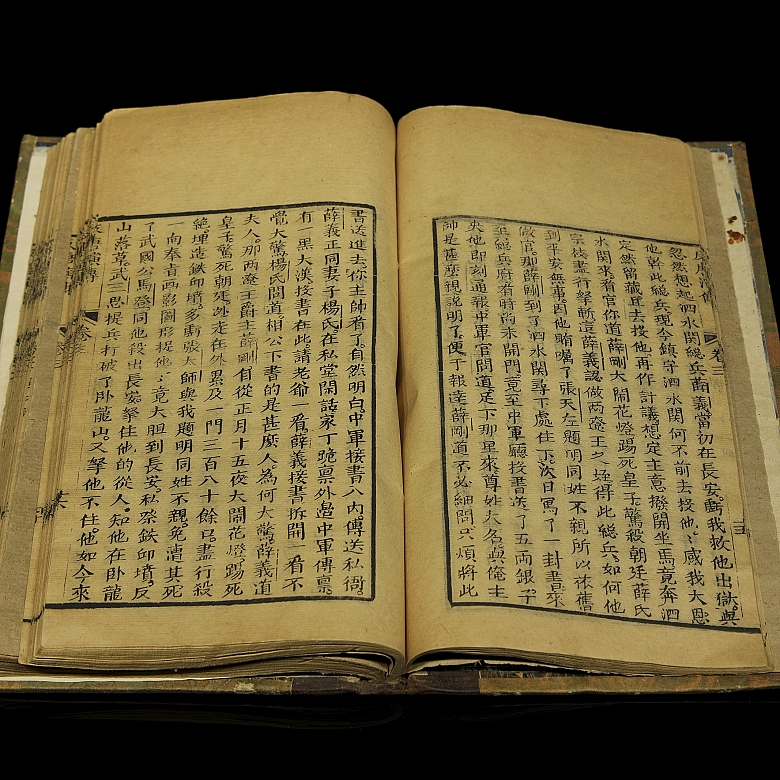 忽然想起泗水関総兵薛義當初在長安虧我救他出獄與
他幹此総兵現今鎮守泗水関何不前去投他他感我大恩
定然留藏耳去投他再作計議想定主意撥開坐馬竟奔泗
水関來看官你道薛剛大鬧花燈踢死皇子驚殺朝廷薛氏
宗枝盡行拏斬這薛義認做兩遼王之姪得此総兵如何他
到平安無事因他賄囑了張天左題明同姓不親所以依舊
做官那薛剛到了泗水関尋下處住下次日寫了一封書來
至総兵府有時尚未開門竟至中軍廳投書送了五両銀子
央他即刻通報中軍官問道足下那里來尊姓大名與俺主
師是甚麽親説明了便于報達薛剛道不必細問只煩將此
書送進去你主帥看了自然明白中軍接書入內傳送私衙
薛義正同妻子楊氏在私堂閑話家丁跪禀外邉中軍傳禀
有一黑大漢投書在此請老爺一看薛義接書拆開一看不
覺大驚楊氏問道相公下書的是甚麽人為何大驚薛義道
夫人那兩遼王爵主薛剛自從正月十五夜大鬧花燈踢死
皇子驚死朝廷迯走在外累及一門三百八十餘口盡行殺
絶埋造鉄丘墳多虧張大師與我題明同姓不親免遭其死
一向奉旨画影圖形提他他竟大胆到長安私祭鉄丘墳反
了武國公馬登同他殺出長安拏住他的從人知他在卧龍
山落草武三思提兵打破了卧龍山又拏他不住他如今來
卷三